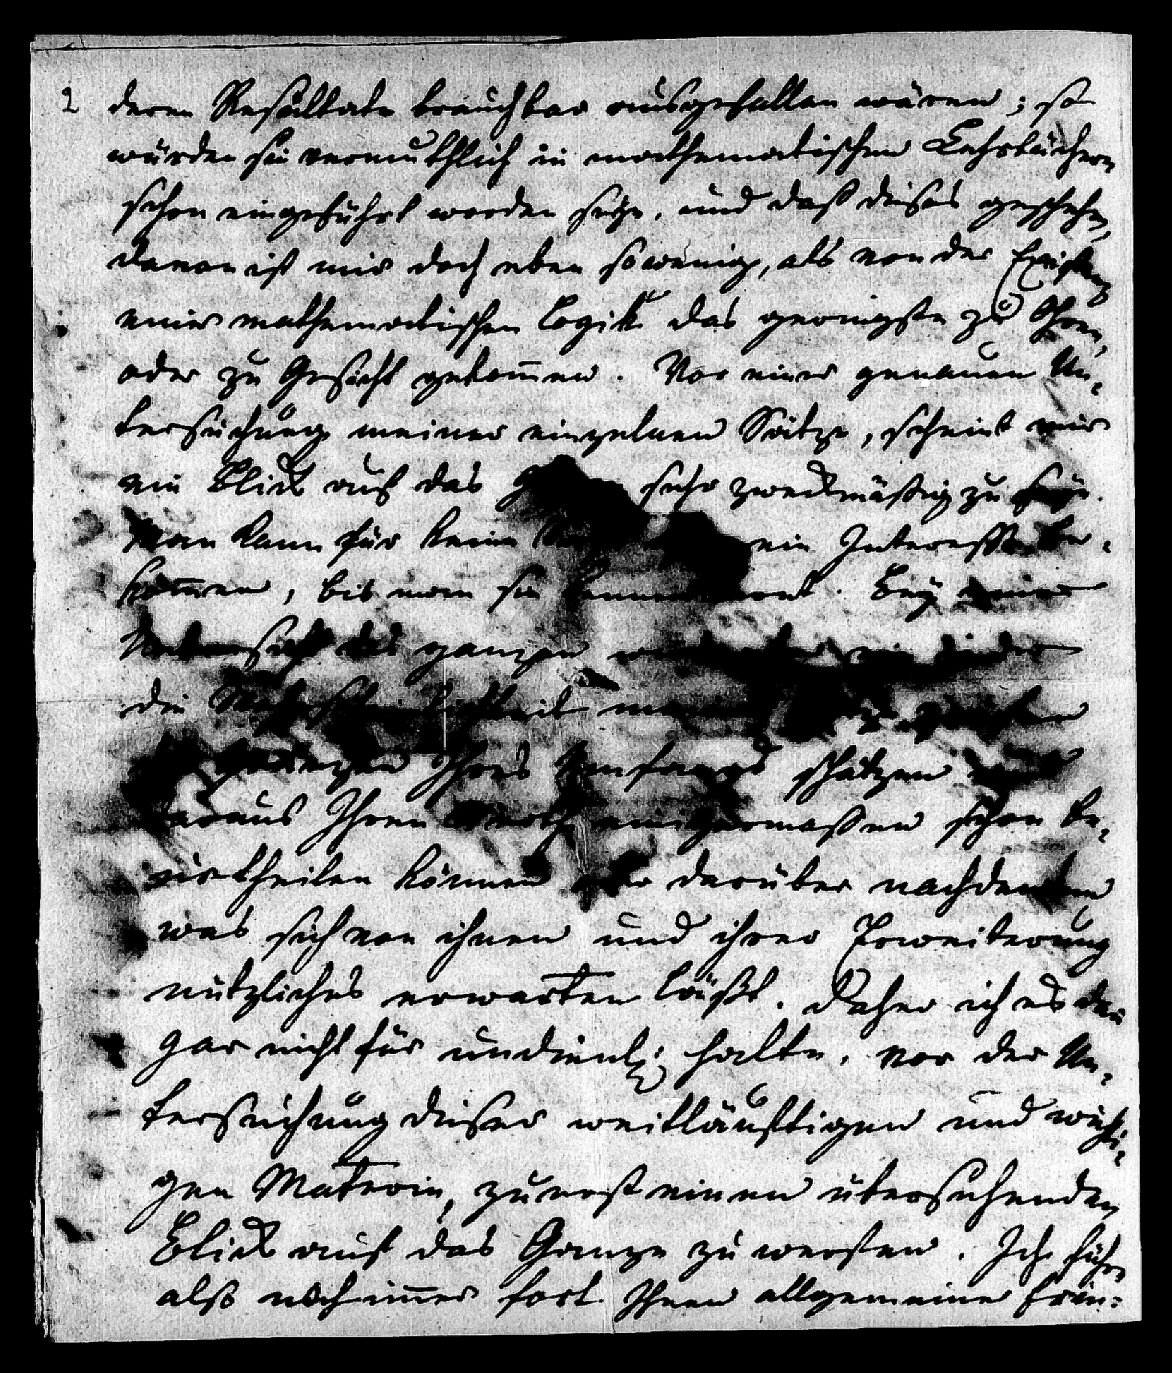 2 deren Resultate brauchbar ausgefallen wären; so
würden sie vermuthlich in mathematischen Lehrbüchern
schon eingeführt worden seyn, und daß dieses geschehen,
davon ist mir doch eben so wenig, als von der Existenz
einer mathematischen Logik das geringste zu Ohren,
oder zu Gesicht gekommen. Vor einer genauen Un-
tersuchung meiner einzelnen Sätze, scheint mir
ein Blick auf das sehr zweckmäßig zu seyn.
Man kann für keine ein Interesse be-
kommen, bis man sie kennen lernt. Bey einer
Uebersicht des ganzen
die
Ihres Umfangs schätzen und
daraus Ihren Werth einigermaßen schon be-
urtheilen können oder darüber nachdenken
was sich von ihnen und ihrer Erweiterung
nützliches erwarten läßt. Daher ich es denn
gar nicht für undienl: halte, vor der Un-
tersuchung dieser weitläuftigen und wichti-
gen Materie, zuerst einen übersehenden
Blick auf das Ganze zu werfen. Ich fahre
also noch immer fort Ihnen allgemeine Erin-